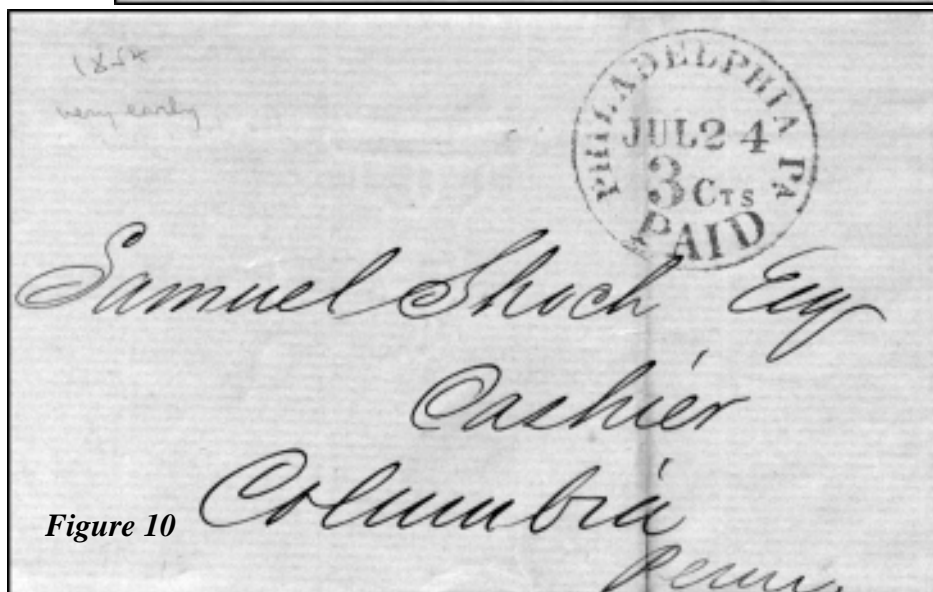 1854
very early
PHILADELPHIA PA
JUL 24
3 CTS
PAID
Samuel Shoch Esq
Cashier
Columbia
Penn.
Figure 10